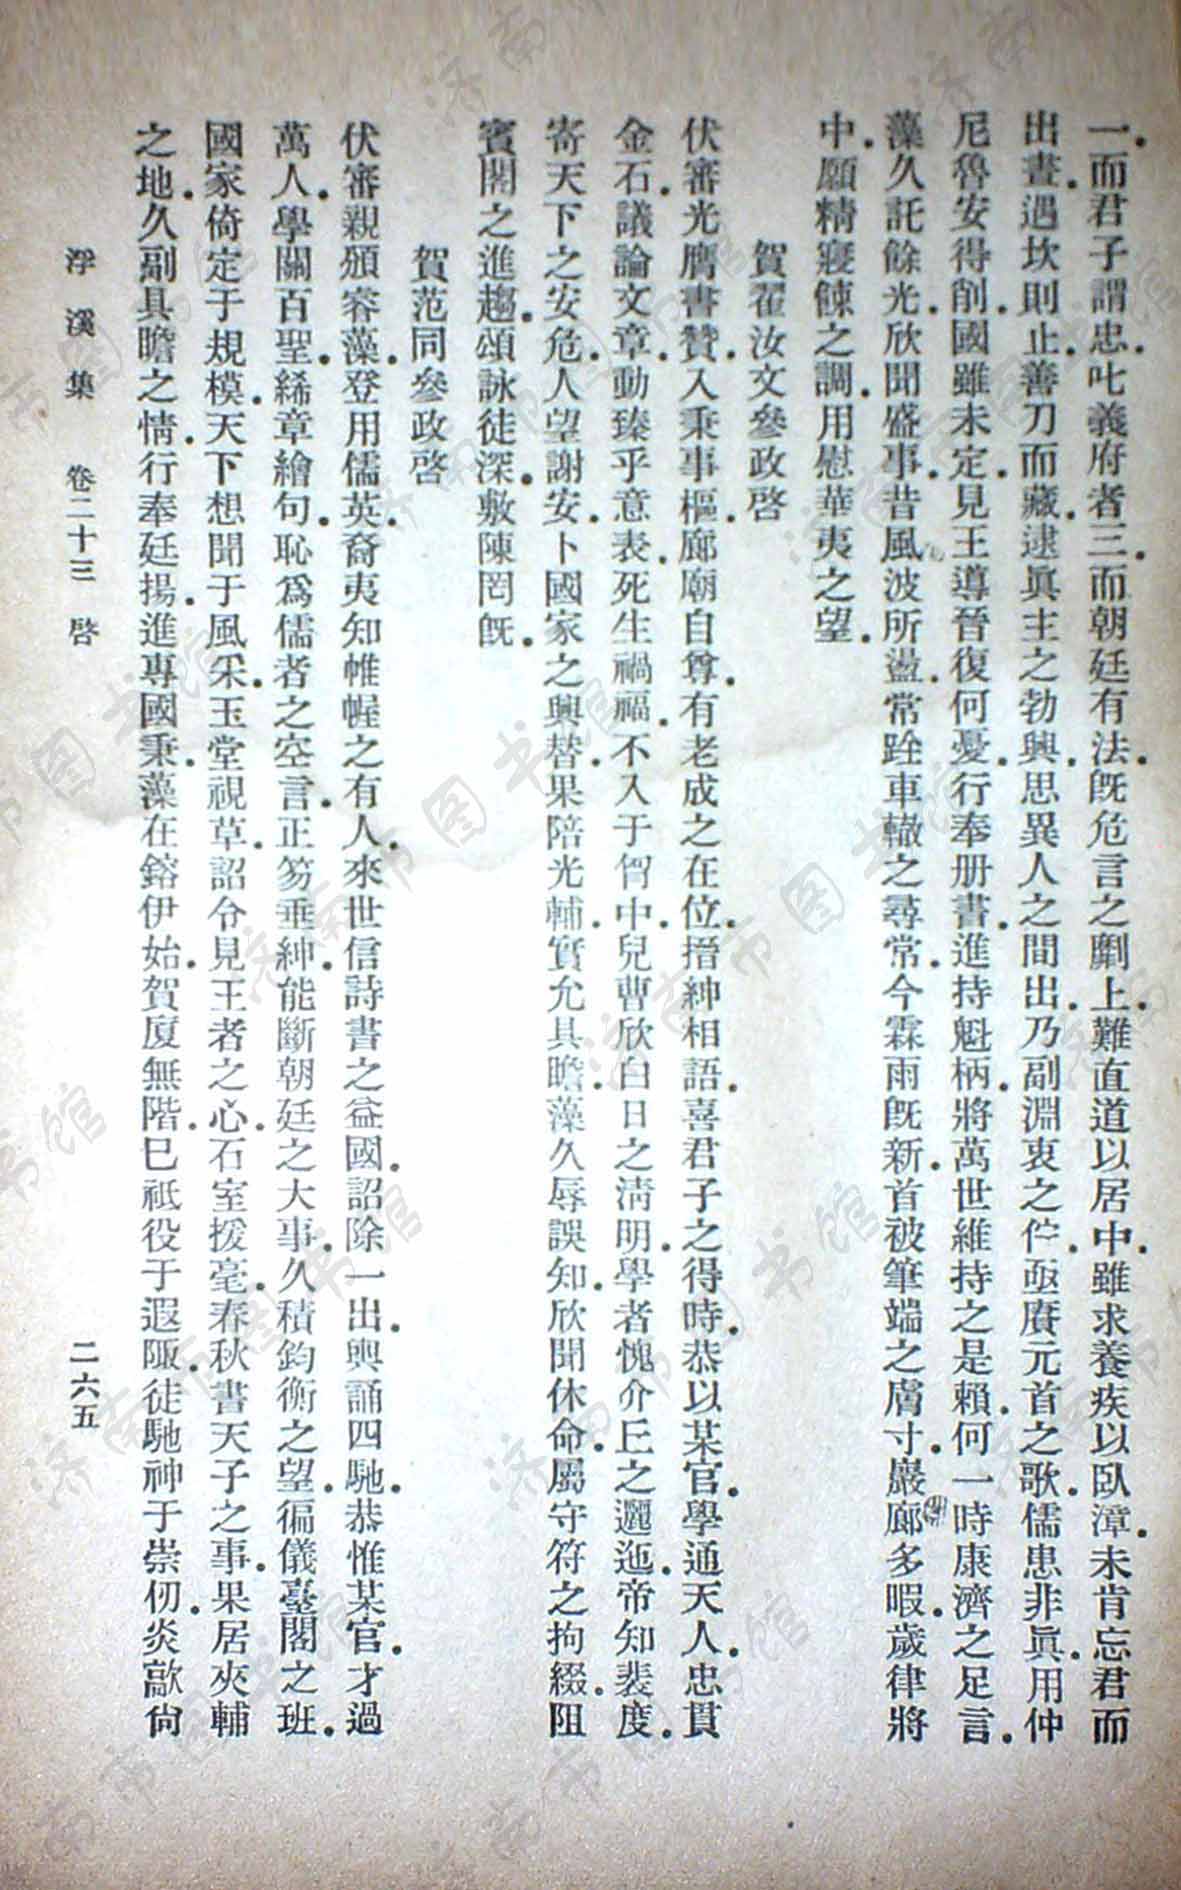 一而君子謂忠叱義府者三而朝廷有法旣危言之劘上難直道以居中雖求養疾以臥漳未肯忘君而
出晝遇坎則止善刀而藏逮眞主之勃興思異人之間出乃副淵衷之伫亟賡元首之歌儒患非眞用仲
尼魯安得削國雖未定見王導晉復何憂行奉册書進持魁柄將萬世維持之是賴何一時康濟之足言
藻久託餘光欣聞盛事昔風波所盪常跧車轍之尋常今霖雨旣新首被筆端之膚寸巖廊多暇歲律將
中願精寢餗之調用慰華夷之望
賀翟汝文參政啓
伏審光膺書贊入秉事樞廊廟自尊有老成之在位搢紳相語喜君子之得時恭以某官學通天人忠貫
金石議論文章動臻乎意表死生禍福不入于胷中兒曹欣白日之淸明學者愧介丘之邐迤帝知裴度
寄天下之安危人望謝安卜國家之興替果陪光輔實允具瞻藻久辱誤知欣聞休命屬守符之拘綴阻
賓閣之進趨頌詠徒深敷陳罔旣
賀范同參政啓
伏審親頒睿藻登用儒英裔夷知帷幄之有人來世信詩書之益國詔除一出輿誦四馳恭惟某官才過
萬人學關百聖絺章繪句恥爲儒者之空言正笏垂紳能斷朝廷之大事久積鈞衡之望徧儀臺閣之班
國家倚定于規模天下想聞于風采玉堂視草詔令見王者之心石室援毫春秋書天子之事果居夾輔
之地久副具瞻之情行奉廷揚進專國秉藻在鎔伊始賀廈無階已祇役于遐陬徒馳神于崇仞炎歊尙
浮溪集 卷二十三 啓 二六五
济南市图书馆